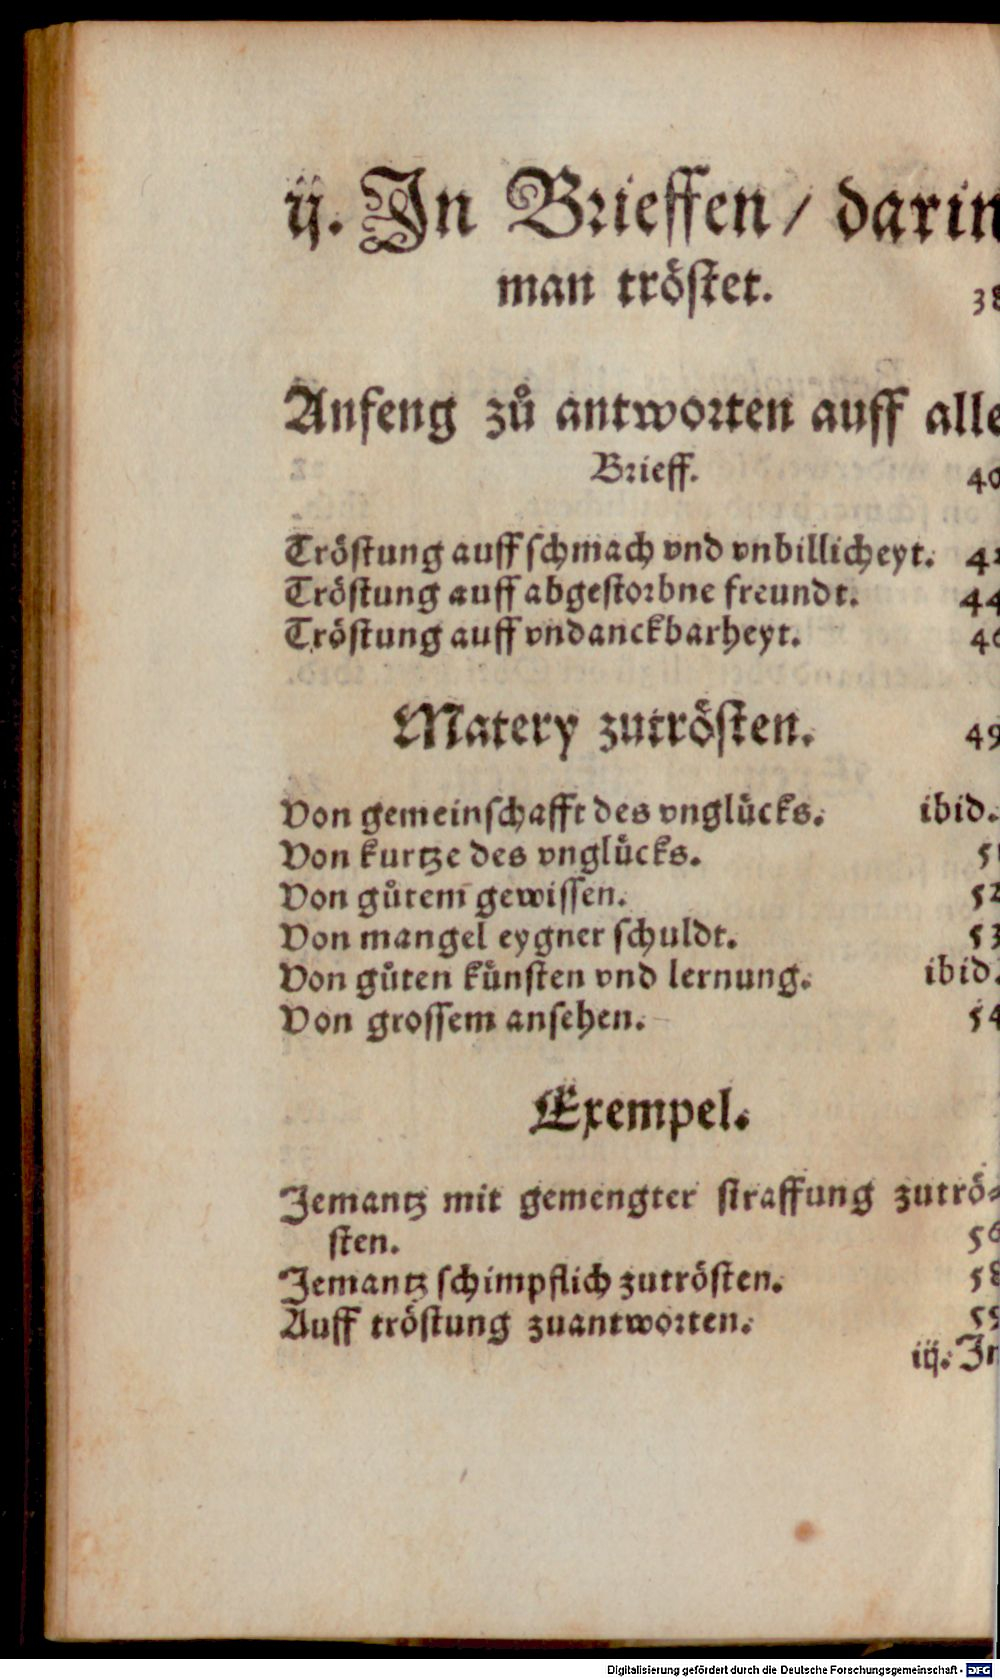 ij. In Brieffen / darin
man tröstet. 38
Anfeng zů antworten auff alle
Brieff. 40
Tröstung auff schmach vnd vnbillicheyt. 42
Tröstung auff abgestorbne freundt. 44
Tröstung auff vndanckbarheyt.
Matery zutrösten. 49
Von gemeinschafft des vnglücks. ibid.
Von kurtze des vnglücks. 51
Von gůtem gewissen. 52
Von mangel eygner schuldt. 53
Von gůten künsten vnd lernung. ibid.
Von grossem ansehen. 54
Exempel.
Jemantz mit gemengter straffung zutrö⸗
sten. 56
Jemantz schimpflich zutrösten. 58
Auff tröstung zuantworten.
iij. In
Digitalisierung gefördert durch die Deutsche Forschungsgemeinschaft - DFG